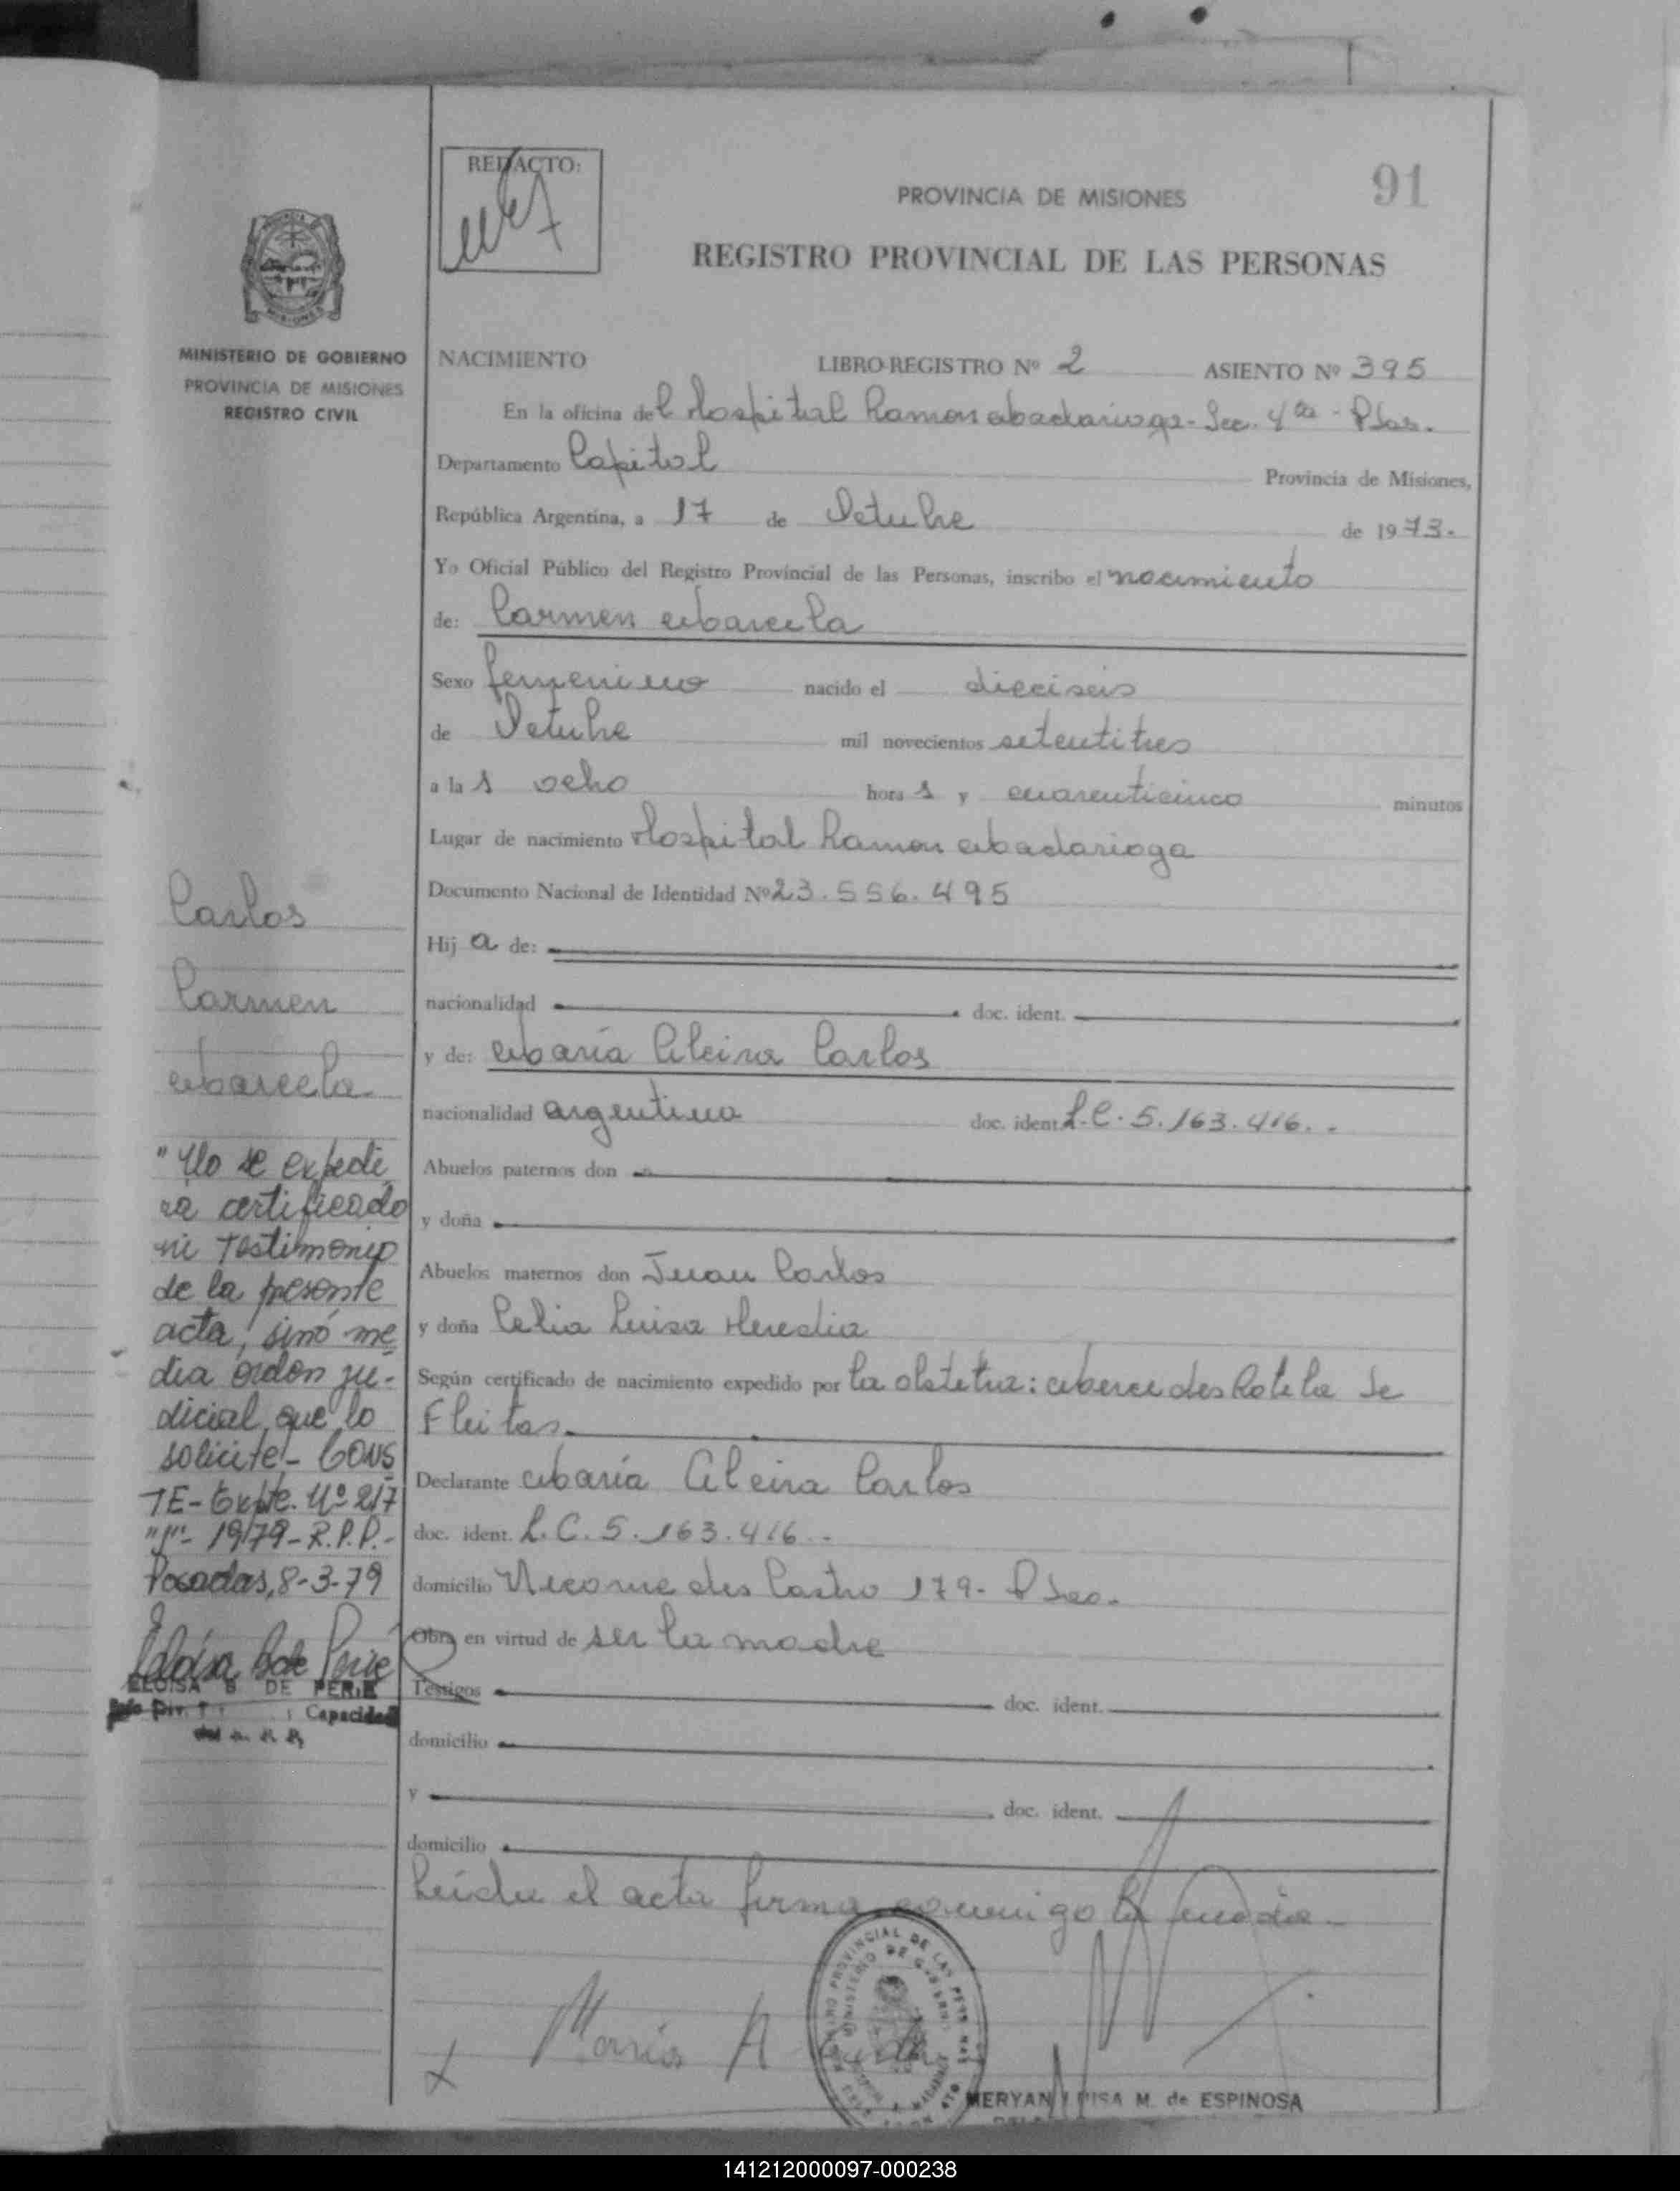 REDACTO:
PROVINCIA DE MISIONES
91
REGISTRO PROVINCIAL DE LAS PERSONAS
MINISTERIO DE GOBIERNO
PROVINCIA DE MISIONES
REGISTRO CIVIL
NACIMIENTO LIBRO-REGISTRO Nº 2 ASIENTO Nº 395
En la oficina del Hospital Ramon Madariaga - Sec. 4ta - Pdas.
Departamento Capital Provincia de Misiones,
República Argentina, a 17 de Octubre de 1973.
Yo Oficial Público del Registro Provincial de las Personas, inscribo el nacimiento
de: Carmen Marcela
Sexo femenino nacido el dieciseis
de Octubre mil novecientos setentitres
a las ocho horas y cuarenticinco minutos
Lugar de nacimiento Hospital Ramon Madariaga
Documento Nacional de Identidad Nº 23.556.495
Hija de:
nacionalidad doc. ident.
y de: María Alcira Carlos
nacionalidad argentina doc. ident. L.C. 5.163.416.
Abuelos paternos don
y doña
Abuelos maternos don Juan Carlos
y doña Celia Luisa Heredia
Según certificado de nacimiento expedido por la obstetra: Mercedes Rotela de
Fleitas.
Declarante María Alcira Carlos
doc. ident. L.C. 5.163.416.
domicilio Nicomedes Castro 179 - Pdas.
Obra en virtud de ser la madre
Testigos doc. ident.
domicilio
y doc. ident.
domicilio
Leída el acta firma conmigo la madre.
Carlos
Carmen
Marcela
"No se expedi
ra certificado
ni testimonio
de la presente
acta, sinó me
dia órden ju-
dicial, que lo
solicite"- CONS
TE- Expte. Nº 217
"J"- 19/79 - R.P.P.-
Posadas, 8-3-79
ELOISA B DE PERIE
Capacidad
María A
MERYAN LUISA M. de ESPINOSA
141212000097-000238